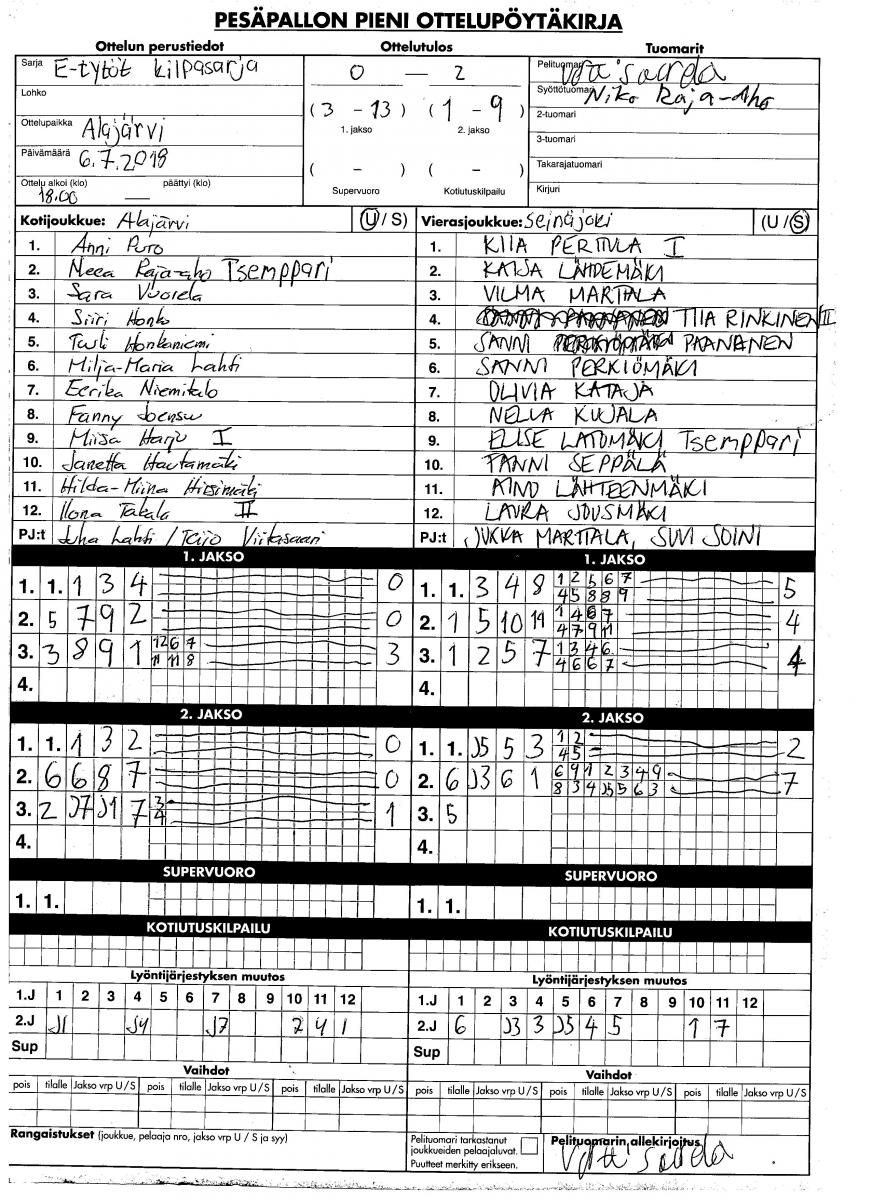 PESÄPALLON PIENI OTTELUPÖYTÄKIRJA
Ottelun perustiedot Ottelutulos Tuomarit
Sarja E-tytöt kilpasarja 0 — 2 Pelituomari
Lohko Syöttötuomari Niko Raja-Aho
(3 - 13) (1 - 9) 2-tuomari
Ottelupaikka Alajärvi 1. jakso 2. jakso 3-tuomari
Päivämäärä 6.7.2018 ( - ) ( - ) Takarajatuomari
Ottelu alkoi (klo) päättyi (klo) Supervuoro Kotiutuskilpailu Kirjuri
18.00 —
Kotijoukkue: Alajärvi (U / S) Vierasjoukkue: Seinäjoki (U / S)
1. Anni Puro 1. KIIA PERTTULA I
2. Neea Raja-aho Tsemppari 2. KATJA LÄHDEMÄKI
3. Sara Vuorela 3. VILMA MARTTALA
4. Siiri Honko 4. TIIA RINKINEN II
5. Tuuli Honkaniemi 5. SANNI PAANANEN
6. Milja-Maria Lahti 6. SANNI PERKIÖMÄKI
7. Eerika Niemitalo 7. OLIVIA KATAJA
8. Fanny Joensuu 8. NELLA KUJALA
9. Miisa Harju I 9. ELISE LATOMÄKI Tsemppari
10. Janetta Hautamäki 10. FANNI SEPPÄLÄ
11. Hilda-Miina Hirsimäki 11. AINO LÄHTEENMÄKI
12. Ilona Takala II 12. LAURA JOUSMÄKI
PJ:t Juha Lahti / Teijo Viitasaari PJ:t JUKKA MARTTALA, SUVI SOINI
1. JAKSO 1. JAKSO
1. 1. 1 3 4 0 1. 1. 3 4 8 1 2 5 6 7 5
4 5 8 8 9
2. 5 7 9 2 0 2. 1 5 10 11 1 4 6 7 4
4 7 9 11
3. 3 8 9 1 12 6 7 3 3. 1 2 5 7 1 3 4 6 4
11 11 8 4 6 6 7
4. 4.
2. JAKSO 2. JAKSO
1. 1. 1 3 2 0 1. 1. J5 5 3 1 2 2
4 5
2. 6 6 8 7 0 2. 6 J3 6 1 6 9 1 2 3 4 9 7
8 3 4 J5 5 6 3
3. 2 J7 J1 7 3 1 3. 5
4
4. 4.
SUPERVUORO SUPERVUORO
1. 1. 1. 1.
KOTIUTUSKILPAILU KOTIUTUSKILPAILU
Lyöntijärjestyksen muutos Lyöntijärjestyksen muutos
1.J 1 2 3 4 5 6 7 8 9 10 11 12 1.J 1 2 3 4 5 6 7 8 9 10 11 12
2.J J1 J4 J7 2 4 1 2.J 6 J3 3 J5 4 5 1 7
Sup Sup
Vaihdot Vaihdot
pois tilalle Jakso vrp U / S pois tilalle Jakso vrp U / S pois tilalle Jakso vrp U / S pois tilalle Jakso vrp U / S
Rangaistukset (joukkue, pelaaja nro, jakso vrp U / S ja syy) Pelituomari tarkastanut joukkueiden pelaajaluvat. Pelituomarin allekirjoitus
Puutteet merkitty erikseen.